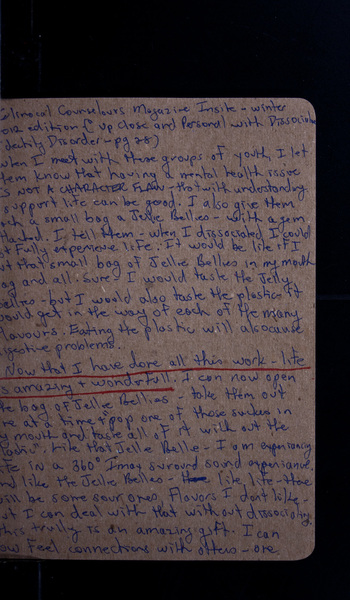 Counsellours Magazine Insite - winter
edition (" up close and Personal with
Disorder - pg 28)
when I meet with these groups of youth I let
know that having a mental health issue
is NOT A CHARACTER FLAW - that with understanding
support life can be good. I also give them
a small bag a Jelle Bellies - with a gem
I tell them - when I dissociated I could
Fully experience life. It would be like if I
that small bag of Jelle Bellies in my mouth
and all. Sure I would taste the Jelly
- but I would also taste the plastic. It
would get in the way of each of the many
flavours. Eating the plastic will also cause
digestive problems.
Now that I have done all this work - life
is amazing + wonderfull. I can now open
the bag of Jelle Bellies - take them out
one at a time + pop one of those suckers in
my mouth and taste all of it with out the
Like that Jelle Belle - I am experiencing
life in a 360° Imax suround sound experiance.
And like the Jelle Bellies - like life - there
will be some sour ones, Flavors I don't like -
but I can deal with that without dissociating
this trully is an amazing gift. I can
now feel connections with others - one